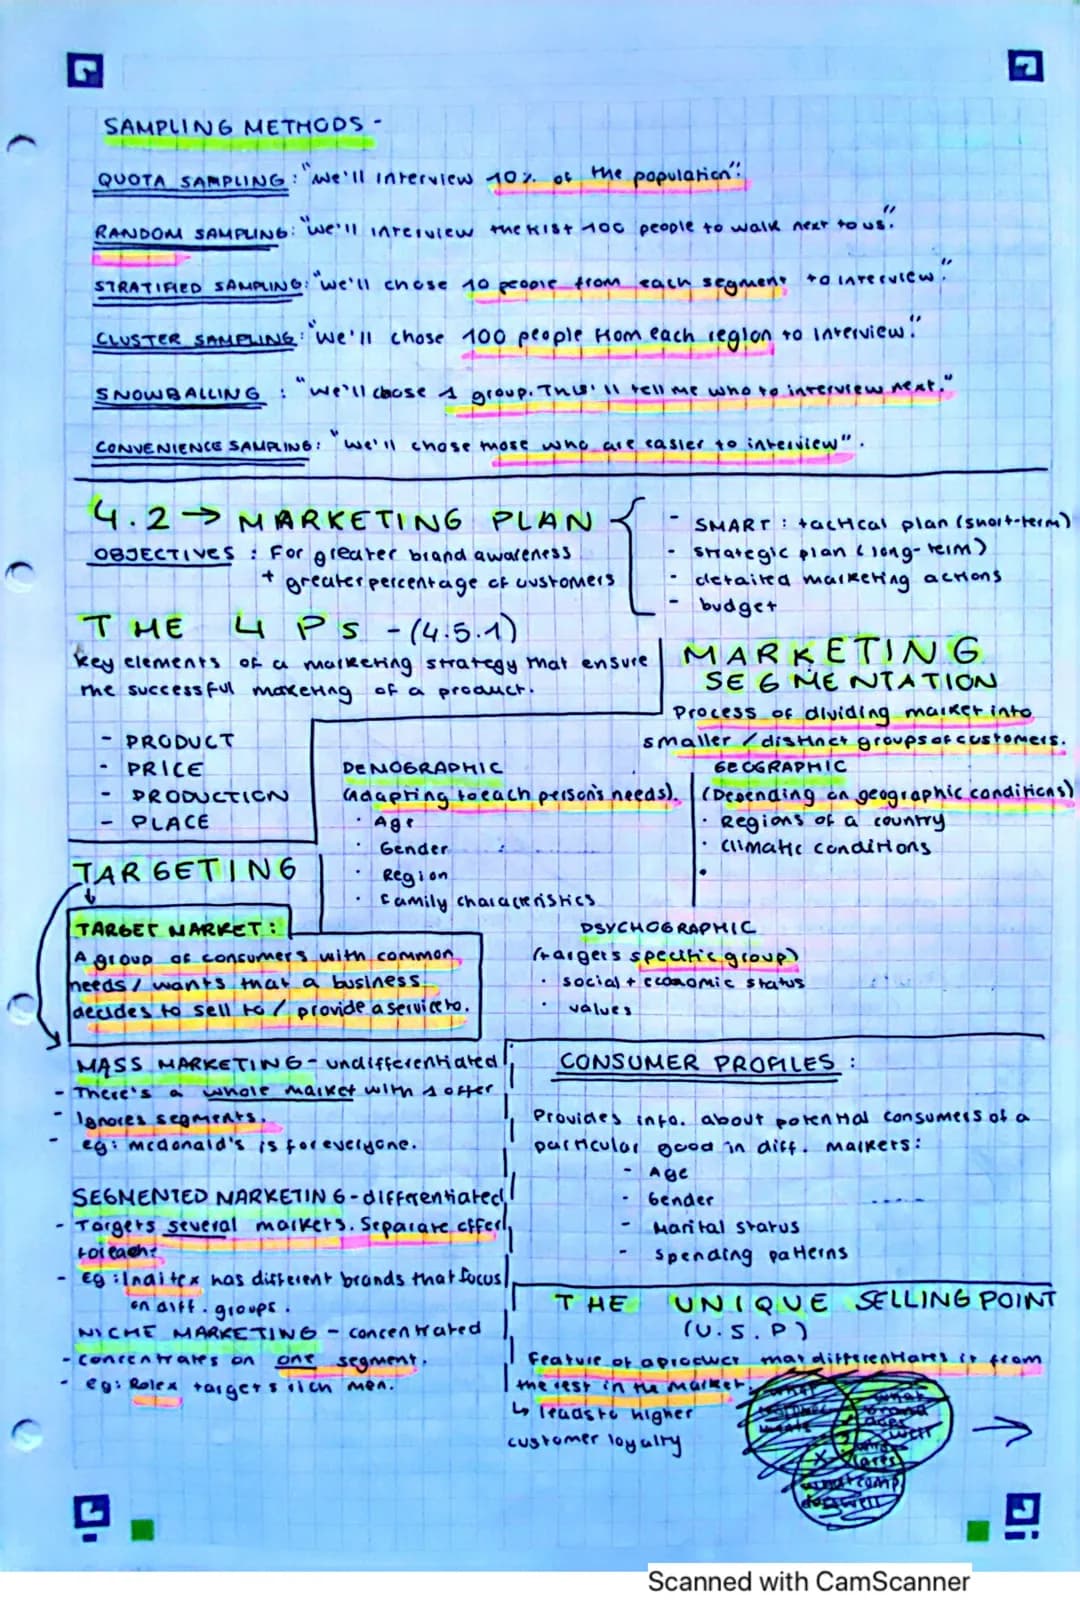 SAMPLING METHODS -
QUOTA SAMPLING: "we'll interview 10% of the population".
RANDOM SAMPLING: "we'll interview the first 100 people to walk next to us".
STRATIFIED SAMPLING: "we'll chose 10 people from each segment to interview".
CLUSTER SAMPLING: "we'll chose 100 people from each region to interview".
SNOWBALLING : "we'll chose 1 group. This'll tell me who to interview next."
CONVENIENCE SAMPLING: "we'll chose those who are easier to interview".
4.2 → MARKETING PLAN
OBJECTIVES : For greater brand awareness
+ greater percentage of customers
- SMART : tactical plan (short-term)
- strategic plan (long-term)
- detailed marketing actions
- budget
THE 4 PS - (4.5.1)
key elements of a marketing strategy that ensure
the successful marketing of a product.
- PRODUCT
- PRICE
- PRODUCTION
- PLACE
MARKETING
SEGMENTATION
Process of dividing market into
smaller / distinct groups of customers.
DEMOGRAPHIC
(Adapting to each person's needs).
· Age
· Gender
· Region
· family characteristics
GEOGRAPHIC
(Depending on geographic conditions)
· Regions of a country
· climatic conditions
·
PSYCHOGRAPHIC
(targets specific group)
· social + economic status
· values
TARGETING
TARGET MARKET:
A group of consumers with common
needs / wants that a business
decides to sell to / provide a service to.
MASS MARKETING - undifferentiated
- There's a whole market with 1 offer
- Ignores segments.
- eg: mcdonald's is for everyone.
SEGMENTED MARKETING - differentiated
- Targets several markets. Separate offer
for each.
- Eg: Inditex has different brands that focus
on diff. groups.
NICHE MARKETING - concentrated
- concentrates on one segment.
- eg: Rolex targets rich men.
CONSUMER PROFILES :
Provides info. about potential consumers of a
particular good in diff. markets:
- Age
- Gender
- Marital status
- spending patterns
THE UNIQUE SELLING POINT
(U.S.P)
Feature of a product that differentiates it from
the rest in the market.
↳ leads to higher
customer loyalty
→
Scanned with CamScanner